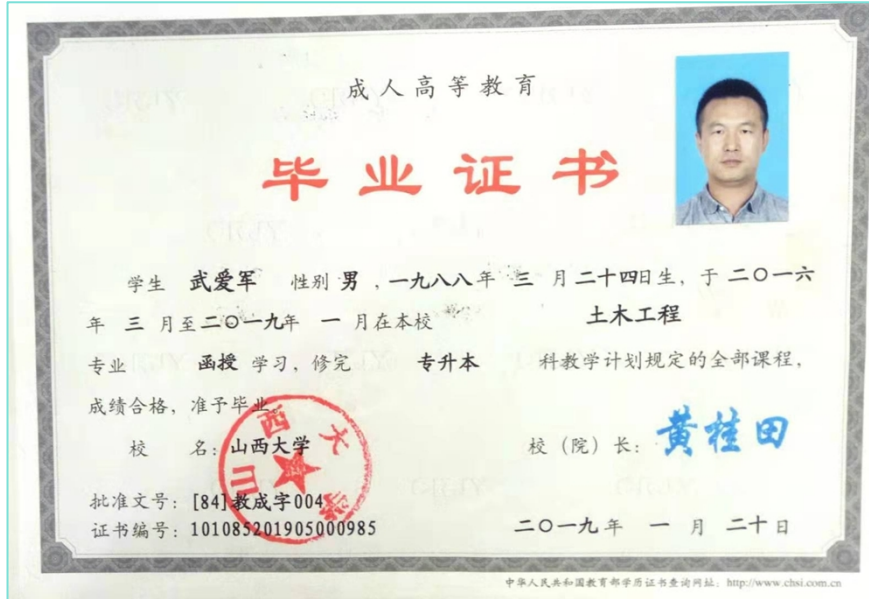 成人高等教育
毕业证书
学生 武爱军 性别 男 ，一九八八年 三 月 二十四日生，于 二〇一六
年 三 月至二〇一九年 一 月在本校 土木工程
专业 函授 学习，修完 专升本 科教学计划规定的全部课程，
成绩合格，准予毕业。
校 名：山西大学 校（院）长：黄桂田
山西大学
批准文号：[84]教成字004
证书编号：101085201905000985 二〇一九年 一 月 二十日
中华人民共和国教育部学历证书查询网址：http://www.chsi.com.cn